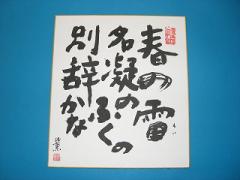 春の雪
名凝のふくの
別辞かな